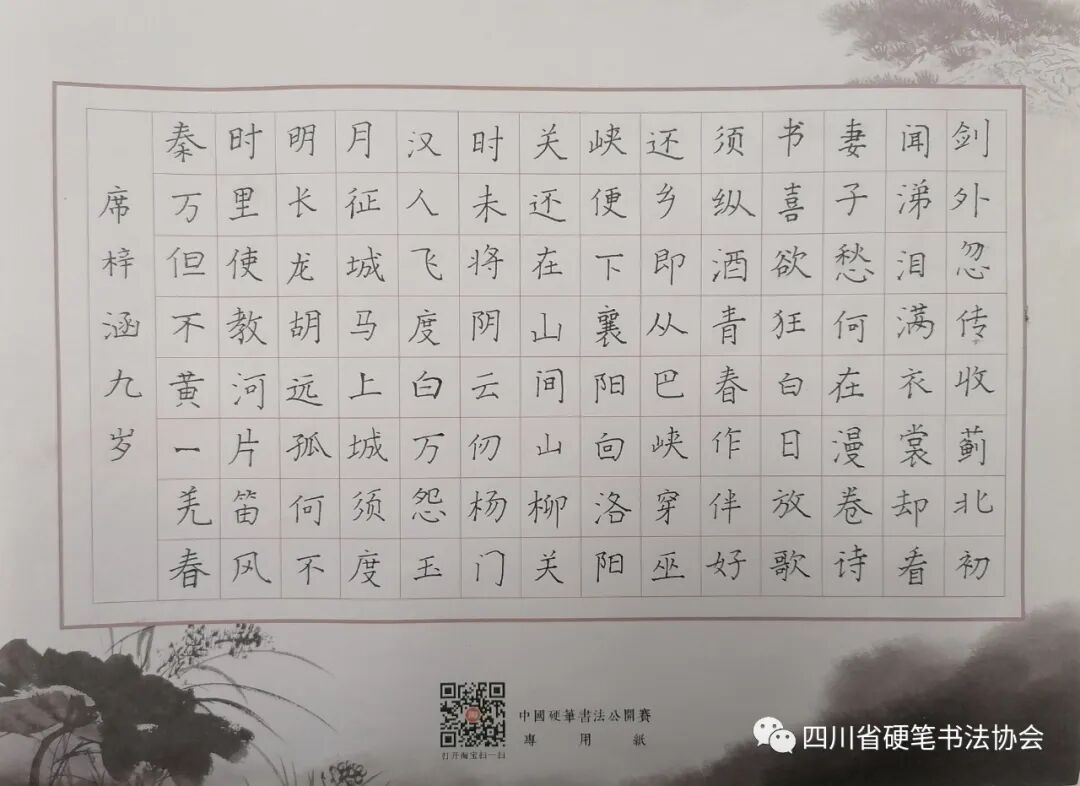 剑外忽传收蓟北初
闻涕泪满衣裳却看
妻子愁何在漫卷诗
书喜欲狂白日放歌
须纵酒青春作伴好
还乡即从巴峡穿巫
峡便下襄阳向洛阳
秦时明月汉时关
万里长征人未还
但使龙城飞将在
不教胡马度阴山
黄河远上白云间
一片孤城万仞山
羌笛何须怨杨柳
春风不度玉门关
席梓涵九岁
打开淘宝扫一扫
中國硬筆書法公開賽
專用紙
四川省硬笔书法协会